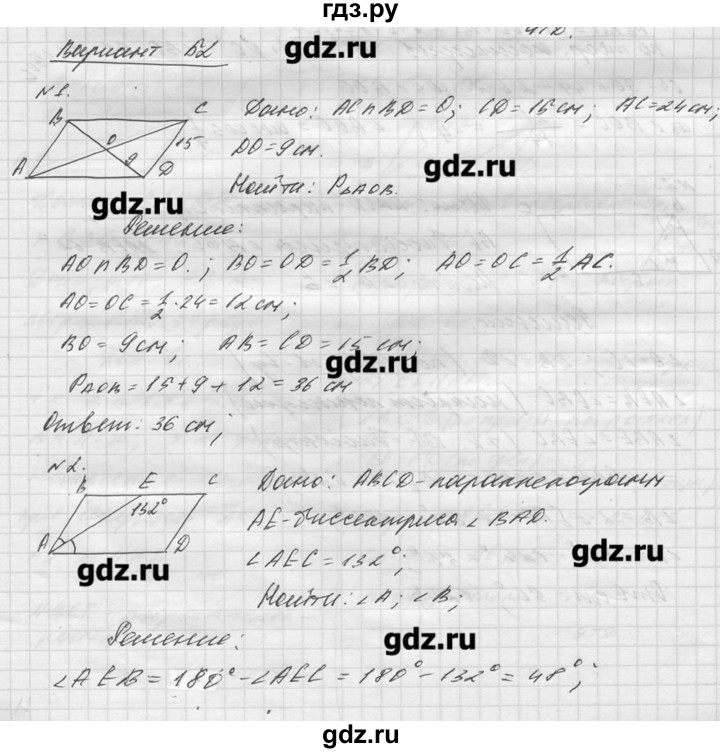 гдз.ру
ч.т.д.
Вариант Б2
gdz.ru
№1.
B C
O 15
9
A D
Дано: AC∩BD=O; CD=15см; AC=24см;
DO=9см.
gdz.ru
Найти: P△AOB.
gdz.ru
Решение:
AO∩BD=O.; BO=OD=1/2 BD; AO=OC=1/2 AC.
AO=OC=1/2·24=12см;
BO=9см; AB=CD=15 см;
gdz.ru
PAOB=15+9+12=36 см
Ответ: 36 см;
№2.
B E C
132°
A D
Дано: ABCD-параллелограмм
AE-биссектриса ∠BAD.
gdz.ru
∠AEC=132°;
gdz.ru
Найти: ∠A; ∠B;
Решение:
gdz.ru
∠AEB=180°-∠AEC=180°-132°=48°;
gdz.ru